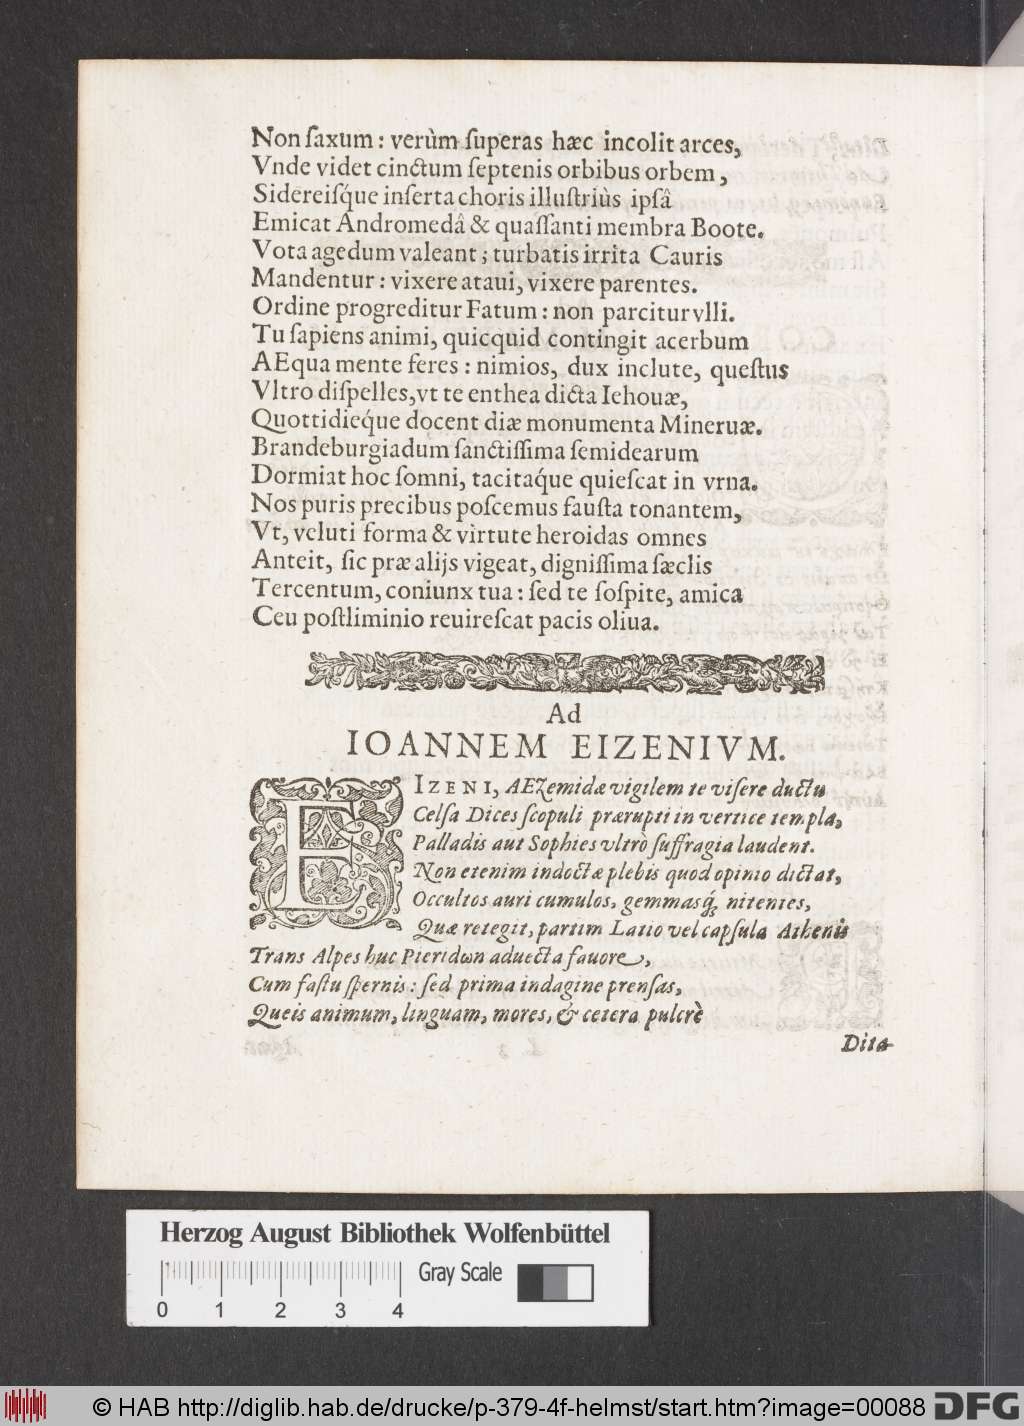 Non ſaxum: verùm ſuperas hæc incolit arces,
Vnde videt cinctum ſeptenis orbibus orbem,
Sidereiſq́ue inſerta choris illuſtriùs ipſâ
Emicat Andromedâ & quaſſanti membra Boote.
Vota agedum valeant; turbatis irrita Cauris
Mandentur: vixere ataui, vixere parentes.
Ordine progreditur Fatum: non parcitur vlli.
Tu ſapiens animi, quicquid contingit acerbum
AEqua mente feres: nimios, dux inclute, queſtus
Vltro diſpelles, vt te enthea dicta Iehouæ,
Quottidieq́ue docent diæ monumenta Mineruæ.
Brandeburgiadum ſanctiſſima ſemidearum
Dormiat hoc ſomni, tacitaq́ue quieſcat in vrna.
Nos puris precibus poſcemus fauſta tonantem,
Vt, veluti forma & virtute heroidas omnes
Anteit, ſic præ alijs vigeat, digniſſima ſæclis
Tercentum, coniunx tua: ſed te ſoſpite, amica
Ceu poſtliminio reuireſcat pacis oliua.
Ad
IOANNEM EIZENIVM.
EIZENI, AEZemidæ vigilem te viſere ductu
Celſa Dices ſcopuli prærupti in vertice templa,
Palladis aut Sophies vltrò ſuffragia laudent.
Non etenim indoctæ plebis quod opinio dictat,
Occultos auri cumulos, gemmasq́; nitentes,
Quæ retegit, partim Latio vel capſula Athenis
Trans Alpes huc Pieridωn aduecta fauore,
Cum faſtu ſpernis: ſed prima indagine prenſas,
Queis animum, linguam, mores, & cetera pulcrè
Dita
Herzog August Bibliothek Wolfenbüttel
Gray Scale
0 1 2 3 4
© HAB http://diglib.hab.de/drucke/p-379-4f-helmst/start.htm?image=00088 DFG